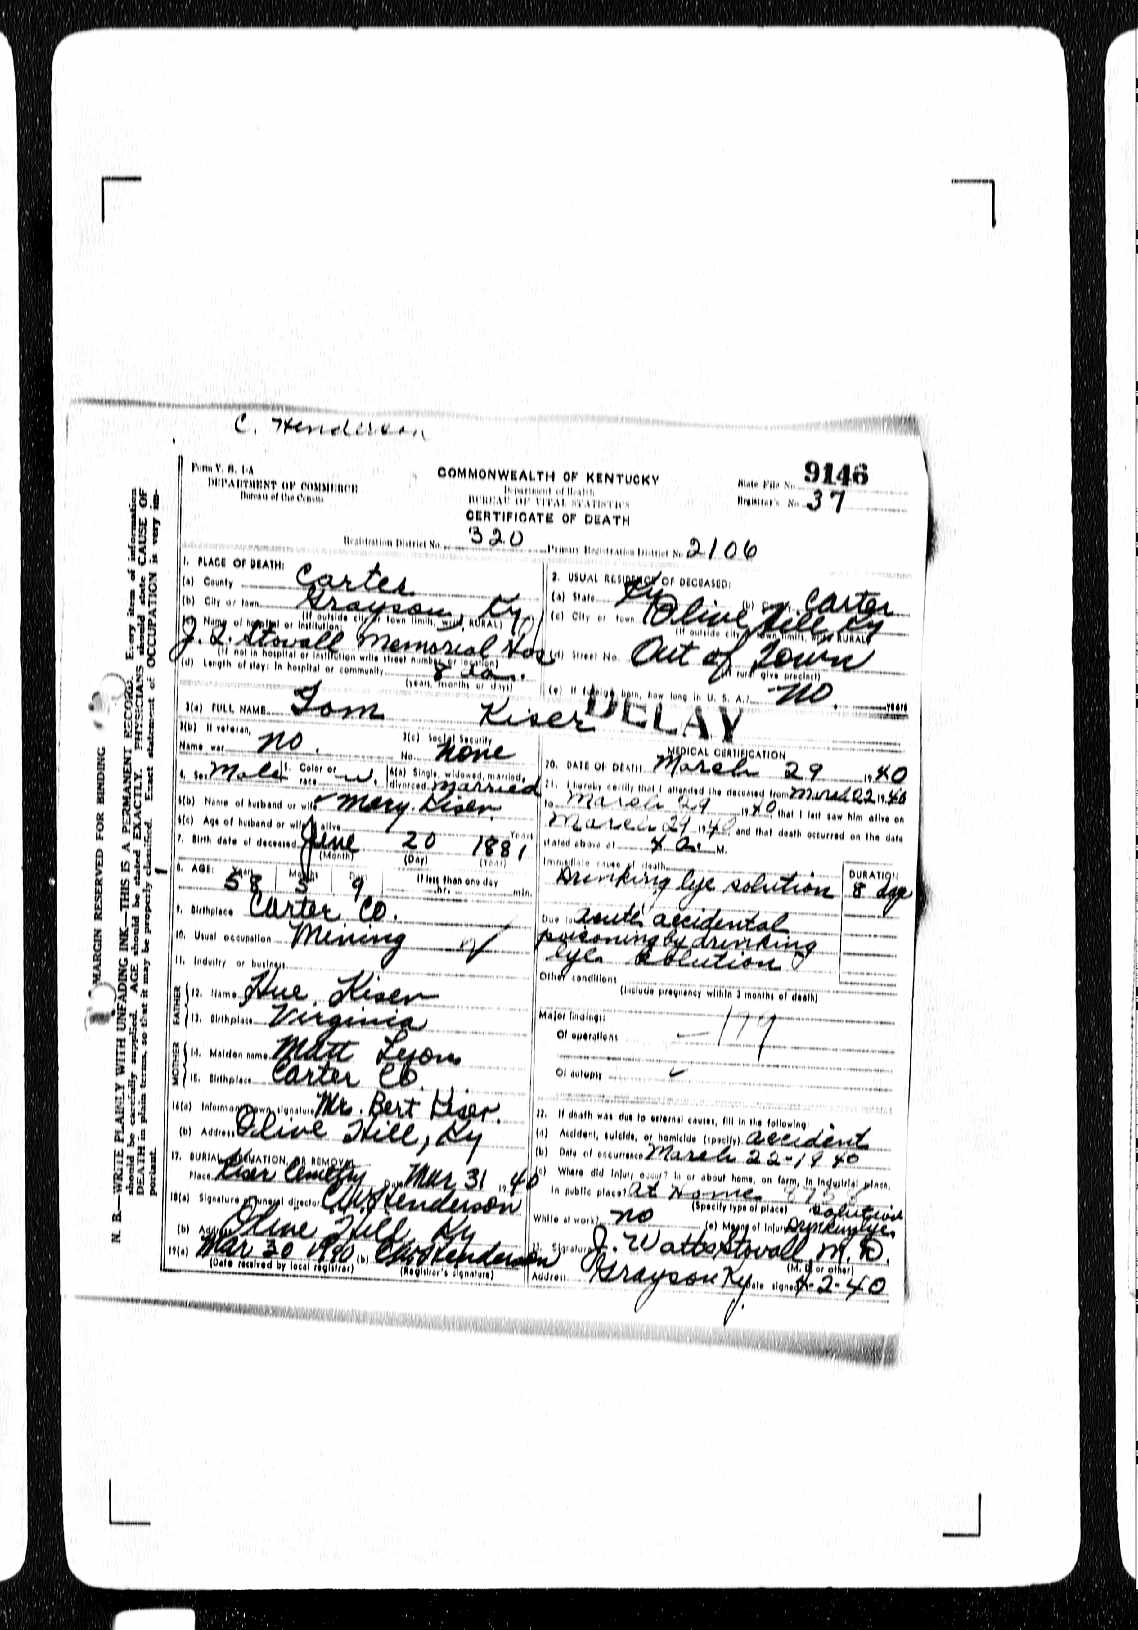 C. Henderson
Form V. S. 1-A
DEPARTMENT OF COMMERCE
Bureau of the Census
COMMONWEALTH OF KENTUCKY
Department of Health
BUREAU OF VITAL STATISTICS
CERTIFICATE OF DEATH
State File No. 9146
Registrar's No. 37
Registration District No. 320 Primary Registration District No. 2106
1. PLACE OF DEATH:
(a) County Carter
(b) City or town Grayson, Ky.
(If outside city or town limits, write RURAL)
(c) Name of hospital or institution:
J. Q. Stovall Memorial Hos
(If not in hospital or institution write street number or location)
(d) Length of stay: In hospital or community 8 da.
(years, months or days)
2. USUAL RESIDENCE OF DECEASED:
(a) State Ky (b) County Carter
(c) City or town Olive Hill, Ky
(If outside city or town limits, write RURAL)
(d) Street No. Out of Town
(If rural give precinct)
(e) If foreign born, how long in U. S. A.? No. years
3(a) FULL NAME Tom Kiser
DELAY
3(b) If veteran,
Name war no.
3(c) Social Security
No. none
4. Sex Male 5. Color or race w. 6(a) Single, widowed, married, divorced married
6(b) Name of husband or wife Mary Kiser
6(c) Age of husband or wife if alive Years
7. Birth date of deceased June 20 1881
(Month) (Day) (Year)
8. AGE: Years 58 Months 5 Days 9 If less than one day hr. min.
9. Birthplace Carter Co.
10. Usual occupation Mining
11. Industry or business
FATHER
12. Name Hue Kiser
13. Birthplace Virginia
MOTHER
14. Maiden name Matt Lyons
15. Birthplace Carter Co
16(a) Informant's own signature Mr. Bert Kiser.
(b) Address Olive Hill, Ky
17. BURIAL, CREMATION, OR REMOVAL
Place Kiser Cemetry Date Mar 31 1940
18(a) Signature of funeral director C. W. Henderson
(b) Address Olive Hill Ky
19(a) Mar 30 1940 (b) C. W. Henderson
(Date received by local registrar) (Registrar's signature)
MEDICAL CERTIFICATION
20. DATE OF DEATH March 29 1940
21. I hereby certify that I attended the deceased from March 22 1940
to March 29 1940, that I last saw him alive on
March 29 1940 and that death occurred on the date
stated above at 4 a. M.
Immediate cause of death DURATION
Drinking lye solution 8 days
Due to acute accidental
poisoning by drinking
lye solution
Other conditions
(Include pregnancy within 3 months of death)
Major findings:
Of operations 179
Of autopsy
22. If death was due to external causes, fill in the following:
(a) Accident, suicide, or homicide (specify) accident
(b) Date of occurrence March 22-1940
(c) Where did injury occur? In or about home, on farm, in industrial place,
in public place? at Home
(Specify type of place)
While at work? no (e) Means of injury Drinking lye solution
23. Signature J. Watts Stovall M. D.
(M. D. or other)
Address Grayson Ky. Date signed 4-2-40
MARGIN RESERVED FOR BINDING
N. B.—WRITE PLAINLY WITH UNFADING INK—THIS IS A PERMANENT RECORD. Every item of information
should be carefully supplied. AGE should be stated EXACTLY. PHYSICIANS should state CAUSE OF
DEATH in plain terms, so that it may be properly classified. Exact statement of OCCUPATION is very im-
portant.